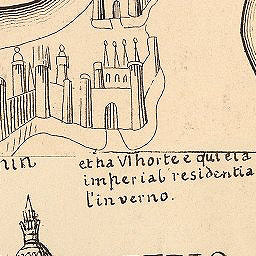 nin et ha VI horte e quieta
imperial residentia
l'inverno.